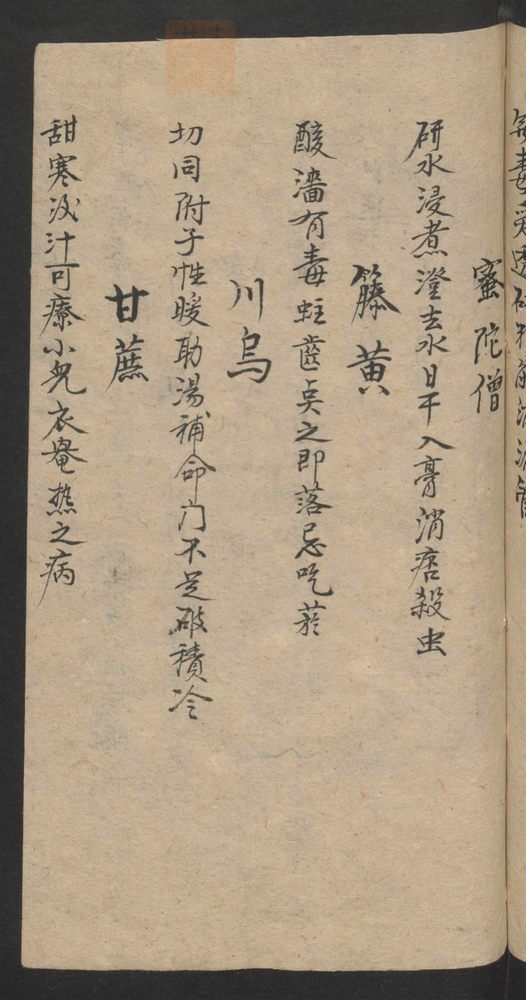 蜜陀僧
研水浸煮澄去水日干入膏消痞殺虫
籐黄
酸濇有毒蛀齒点之即落忌吃菸
川烏
切同附子性暖助湯補命门不足破積冷
甘蔗
甜寒汁可療小兒衣奄热之病